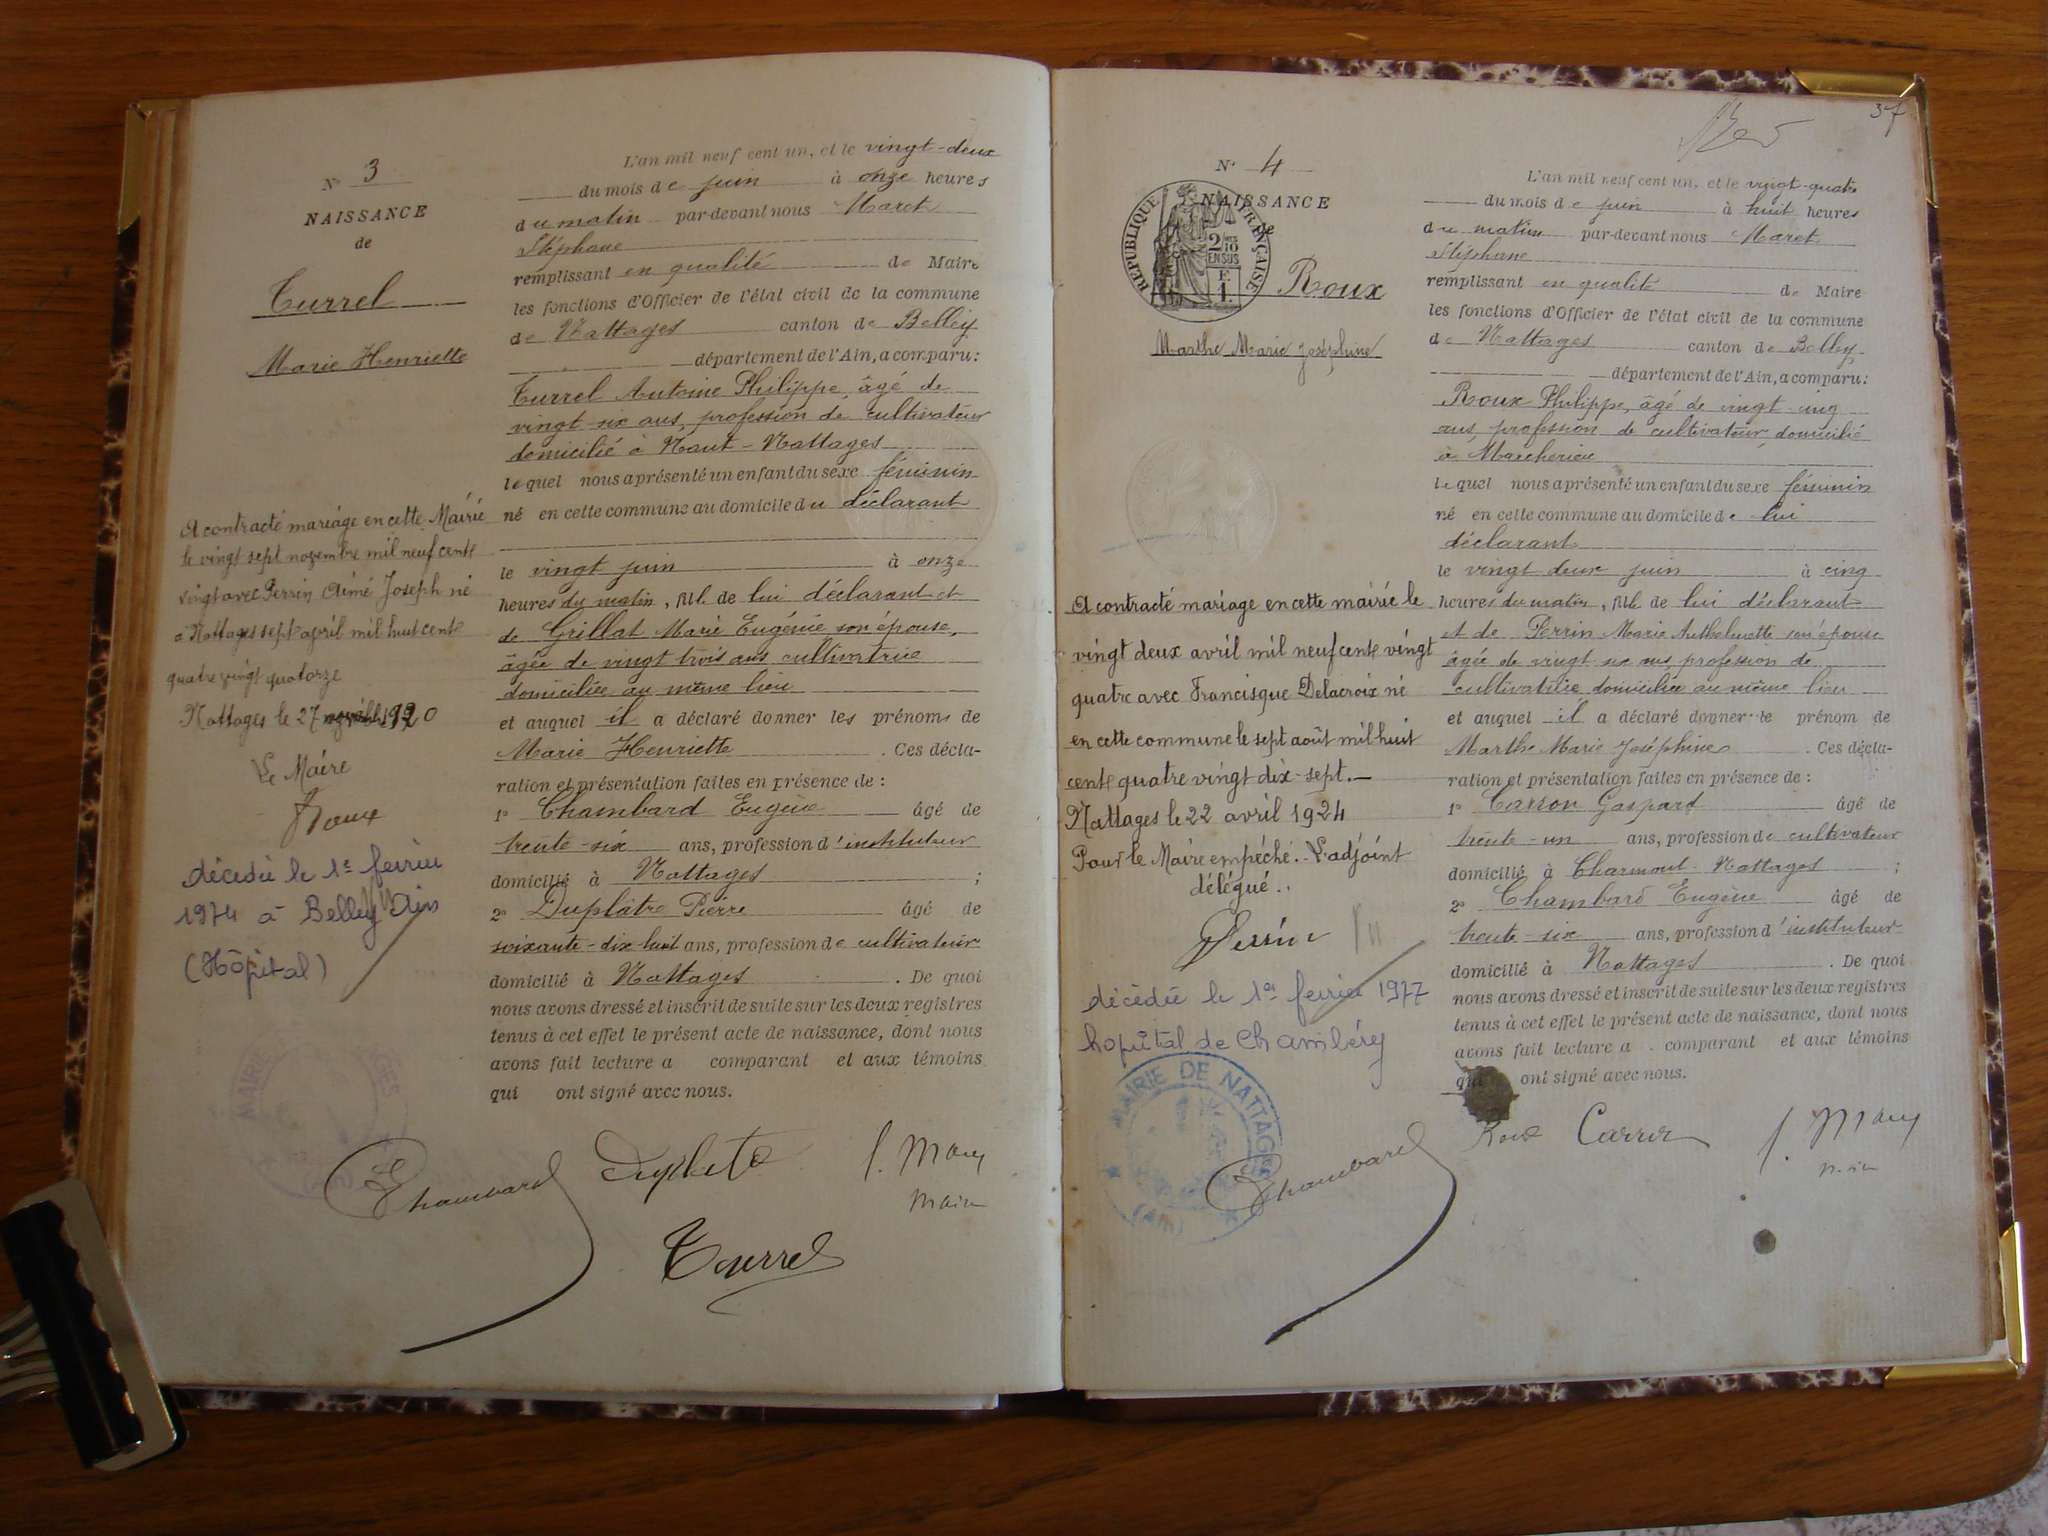 N° 3
NAISSANCE
de
Turrel
Marie Henriette
A contracté mariage en cette Mairie
le vingt sept novembre mil neuf cent
vingt avec Perrin Aimé Joseph né
à Nattages sept avril mil huit cent
quatre vingt quatorze
Nattages le 27 1920
Le Maire
Roux
décédée le 1er février
1974 à Belley Ain
(Hôpital)
MAIRIE
L'an mil neuf cent un, et le vingt-deux
du mois de juin à onze heures
du matin par-devant nous Maret
Stéphane
remplissant en qualité de Maire
les fonctions d'Officier de l'état civil de la commune
de Nattages canton de Belley
département de l'Ain, a comparu:
Turrel Antoine Philippe, âgé de
vingt-six ans, profession de cultivateur
domicilié à Haut-Nattages
lequel nous a présenté un enfant du sexe féminin
né en cette commune au domicile du déclarant
le vingt juin à onze
heures du matin, fille de lui déclarant et
de Grillat Marie Eugénie son épouse,
âgée de vingt trois ans cultivatrice
domiciliée au même lieu
et auquel il a déclaré donner les prénoms de
Marie Henriette . Ces décla-
ration et présentation faites en présence de :
1° Chambard Eugène âgé de
trente-six ans, profession d'instituteur
domicilié à Nattages ;
2° Duplâtre Pierre âgé de
soixante-dix huit ans, profession de cultivateur
domicilié à Nattages . De quoi
nous avons dressé et inscrit de suite sur les deux registres
tenus à cet effet le présent acte de naissance, dont nous
avons fait lecture a comparant et aux témoins
qui ont signé avec nous.
Chambard
Turrel
37
N° 4
NAISSANCE
de
REPUBLIQUE FRANÇAISE
2/10
EN SUS
Roux
Marthe Marie Joséphine
A contracté mariage en cette mairie le
vingt deux avril mil neuf cent vingt
quatre avec Francisque Delacroix né
en cette commune le sept août mil huit
cent quatre vingt dix-sept.
Nattages le 22 avril 1924
Pour le Maire empéché. L'adjoint
délégué..
Perrin
décédée le 1er février 1977
hopital de Chambéry
MAIRIE DE NATTAGES
(AIN)
L'an mil neuf cent un, et le vingt-quatre
du mois de juin à huit heures
du matin par-devant nous Maret
Stéphane
remplissant en qualité de Maire
les fonctions d'Officier de l'état civil de la commune
de Nattages canton de Belley
département de l'Ain, a comparu:
Roux Philippe, âgé de vingt-cinq
ans, profession de cultivateur domicilié
à
lequel nous a présenté un enfant du sexe féminin
né en cette commune au domicile de lui
déclarant
le vingt deux juin à cinq
heures du matin, fille de lui déclarant
et de Perrin Marie Anthelmette son épouse
âgée de vingt-six ans profession de
cultivatrice domiciliée au même lieu
et auquel il a déclaré donner le prénom de
Marthe Marie Joséphine . Ces décla-
ration et présentation faites en présence de :
1° Carron Gaspard âgé de
trente-un ans, profession de cultivateur
domicilié à Charmont-Nattages ;
2° Chambard Eugène âgé de
trente-six ans, profession d'instituteur
domicilié à Nattages . De quoi
nous avons dressé et inscrit de suite sur les deux registres
tenus à cet effet le présent acte de naissance, dont nous
avons fait lecture a comparant et aux témoins
qui ont signé avec nous.
Roux
Chambard